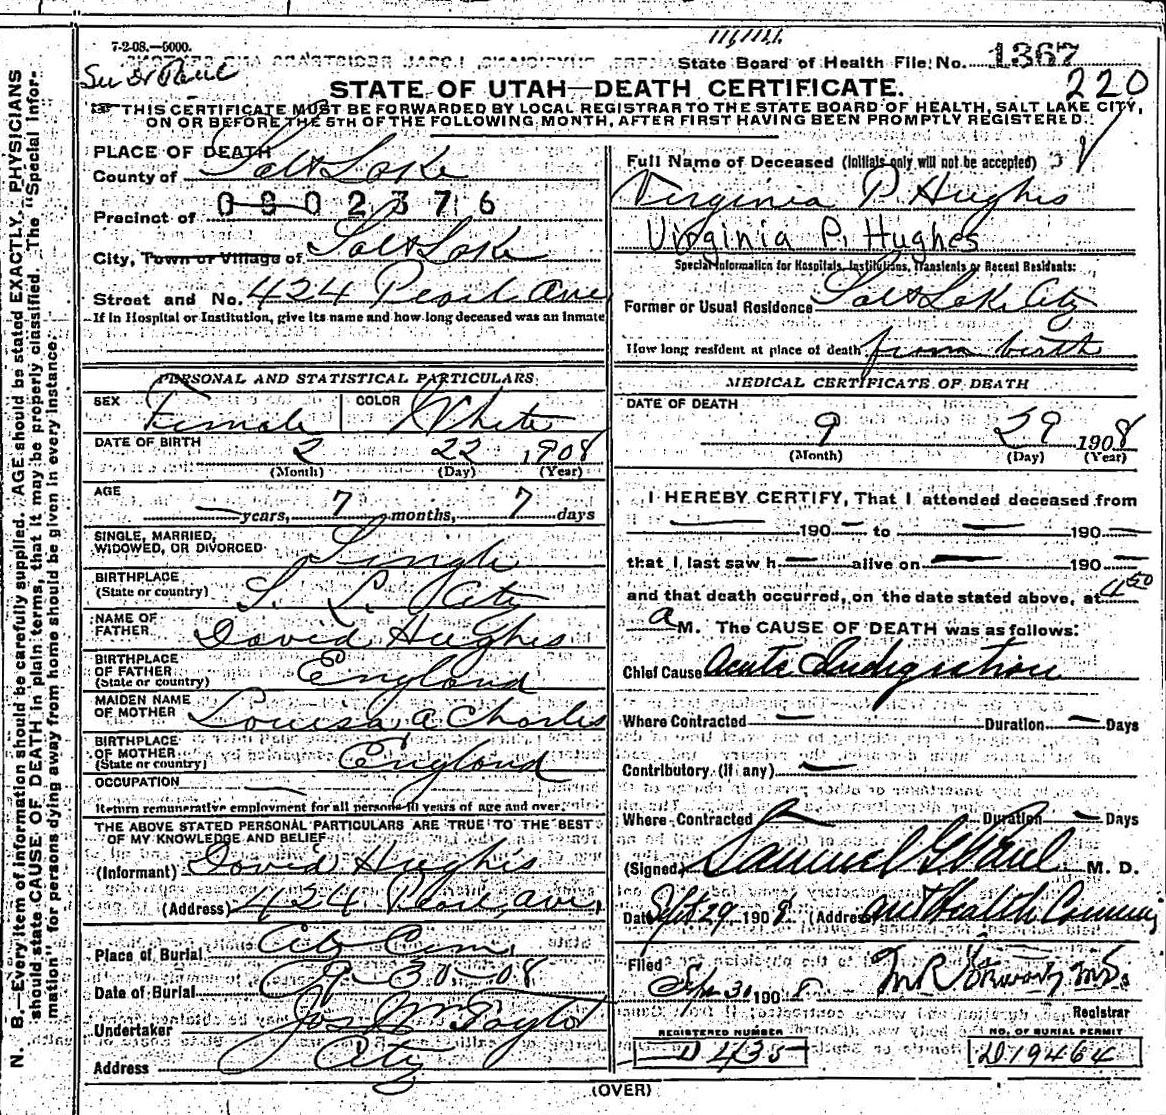 7-2-08.—5000.
State Board of Health File No. 1367
See Dr Paul
220
STATE OF UTAH—DEATH CERTIFICATE.
THIS CERTIFICATE MUST BE FORWARDED BY LOCAL REGISTRAR TO THE STATE BOARD OF HEALTH, SALT LAKE CITY,
ON OR BEFORE THE 5TH OF THE FOLLOWING MONTH, AFTER FIRST HAVING BEEN PROMPTLY REGISTERED.
PLACE OF DEATH
County of Salt Lake
Precinct of
0802376
City, Town or Village of Salt Lake
Street and No. 424 Pearl Ave
If in Hospital or Institution, give its name and how long deceased was an inmate
PERSONAL AND STATISTICAL PARTICULARS
SEX Female
COLOR White
DATE OF BIRTH 2 22 1908
(Month) (Day) (Year)
AGE
— years, 7 months, 7 days
SINGLE, MARRIED,
WIDOWED, OR DIVORCED Single
BIRTHPLACE
(State or country) S. L. City
NAME OF
FATHER David Hughes
BIRTHPLACE
OF FATHER
(State or country) England
MAIDEN NAME
OF MOTHER Louisa A Charles
BIRTHPLACE
OF MOTHER
(State or country) England
OCCUPATION —
Return remunerative employment for all persons 10 years of age and over.
THE ABOVE STATED PERSONAL PARTICULARS ARE TRUE TO THE BEST
OF MY KNOWLEDGE AND BELIEF
(Informant) David Hughes
(Address) 424 Pearl Ave,
Place of Burial City Cem,
Date of Burial 9-30-08
Undertaker Jos Wm Taylor
Address City
Full Name of Deceased (Initials only will not be accepted)
Virginia P. Hughes
Virginia P. Hughes
Special Information for Hospitals, Institutions, Transients or Recent Residents:
Former or Usual Residence Salt Lake City
How long resident at place of death from birth
MEDICAL CERTIFICATE OF DEATH
DATE OF DEATH
9 29 1908
(Month) (Day) (Year)
I HEREBY CERTIFY, That I attended deceased from
— 190 — to — 190 —
that I last saw h — alive on — 190 —
and that death occurred, on the date stated above, at 4 50
a M. The CAUSE OF DEATH was as follows:
Chief Cause Acute Indigestion
Where Contracted — Duration — Days
Contributory (If any) —
Where Contracted Duration — Days
(Signed) Samuel G. Paul M. D.
Date Sept 29 1908 (Address)
Filed Sep 30 1908
Registrar
REGISTERED NUMBER
D 435
NO. OF BURIAL PERMIT
D 19464
(OVER)
N. B.—Every item of information should be carefully supplied. AGE should be stated EXACTLY. PHYSICIANS
should state CAUSE OF DEATH in plain terms, that it may be properly classified. The "Special Infor-
mation" for persons dying away from home should be given in every instance.